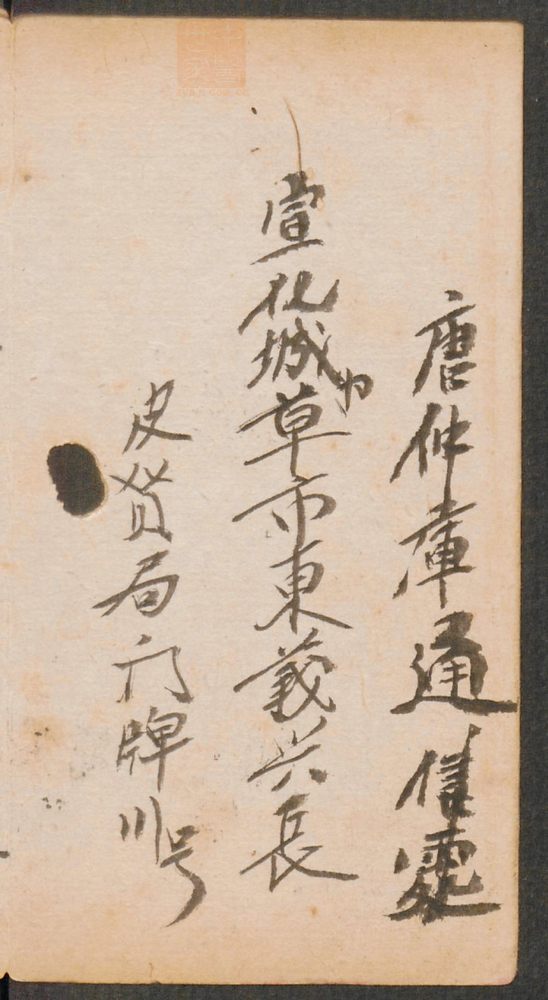 唐仲庫通信處
宣化城内草市東義兴長
皮货局门牌川号